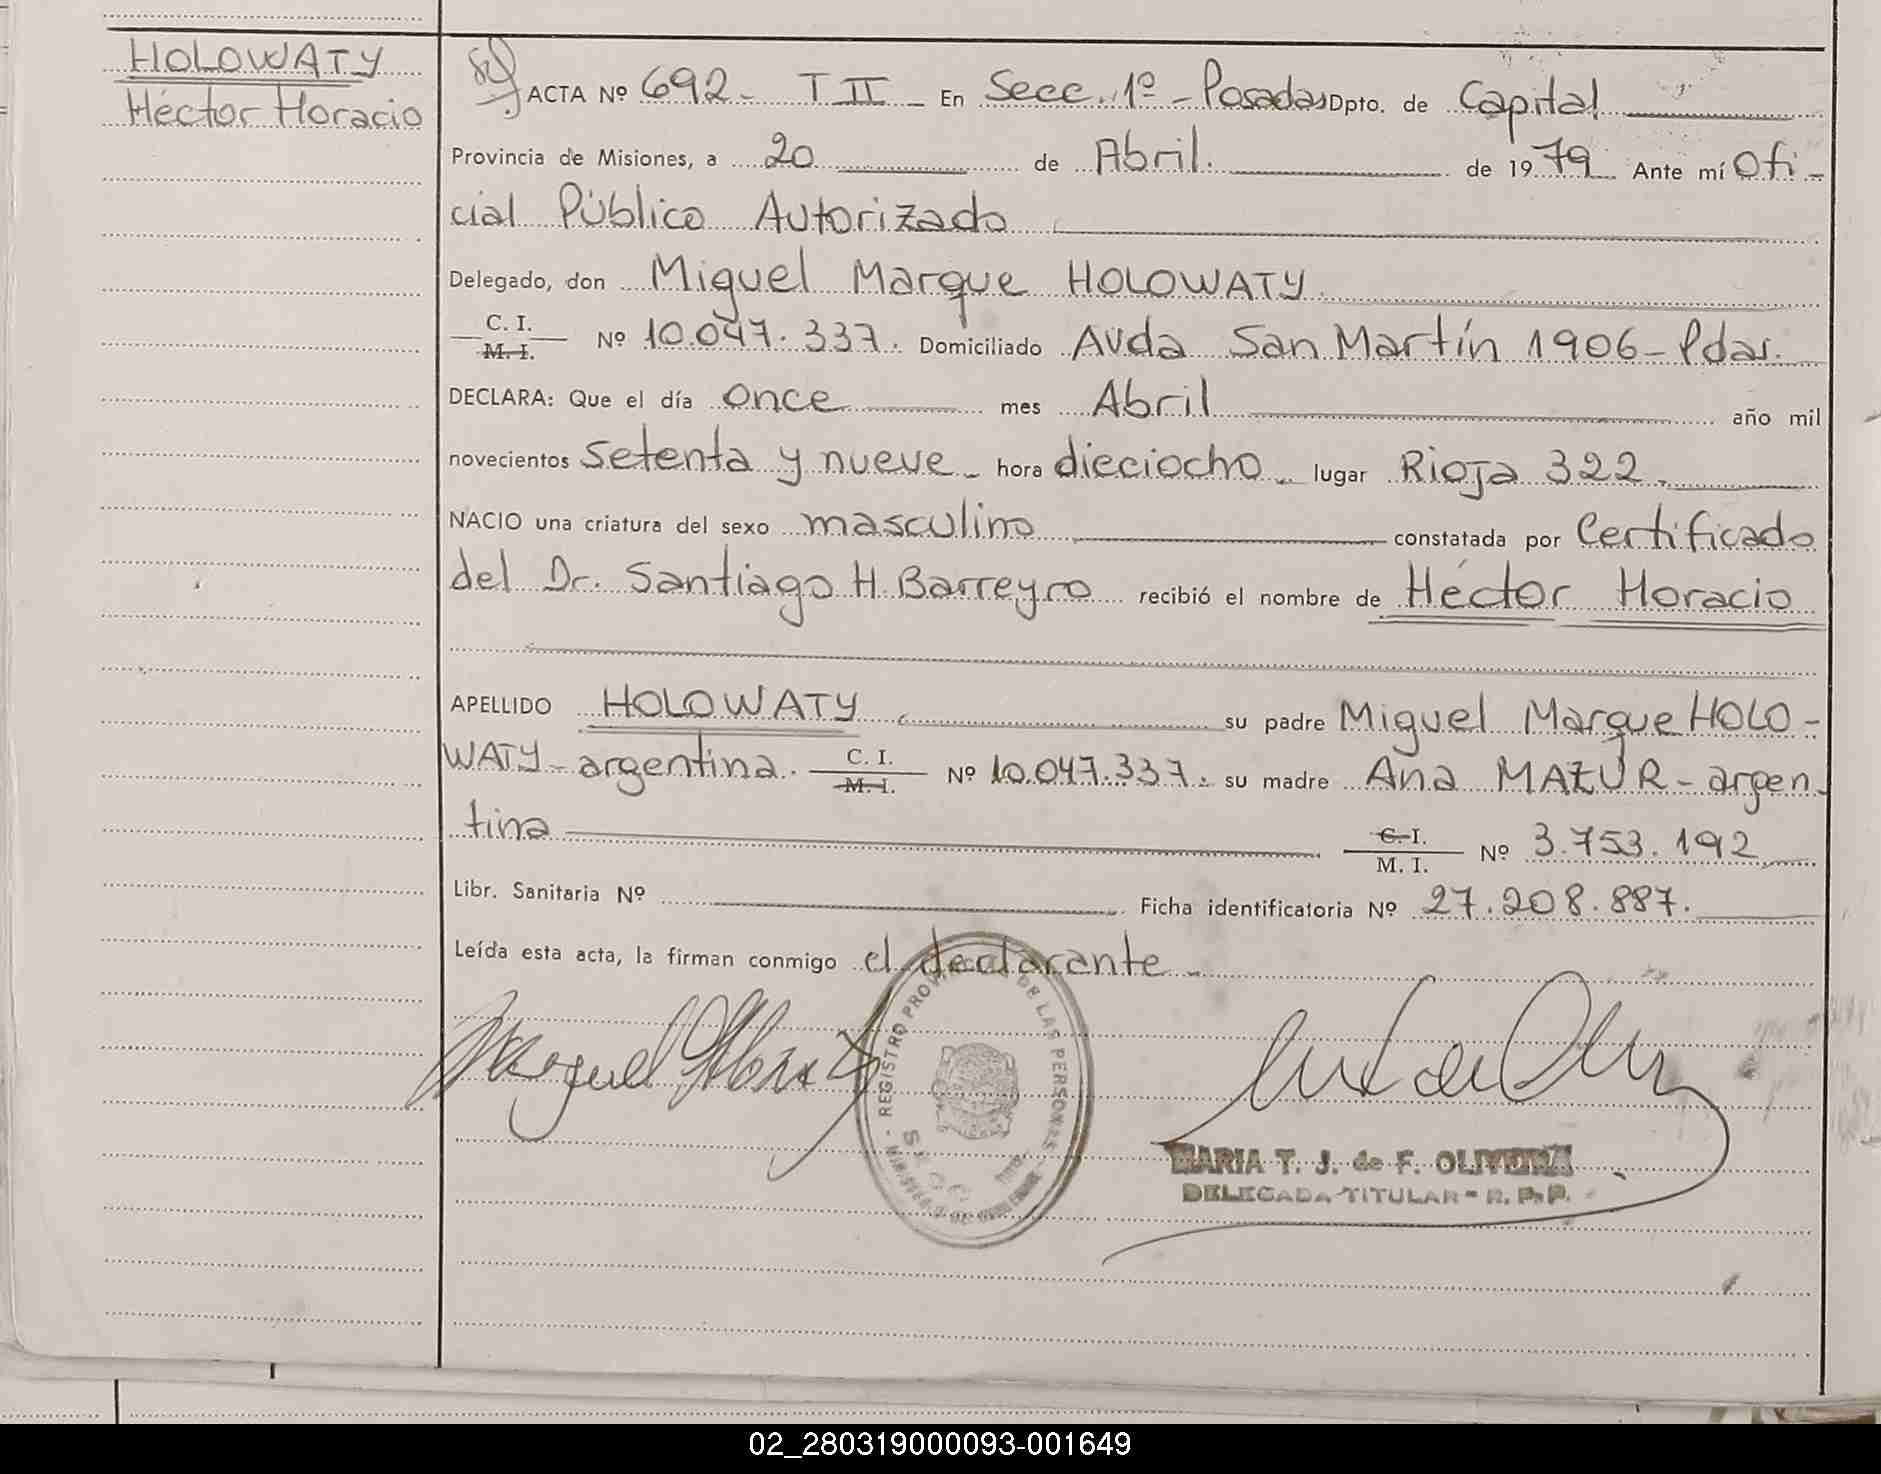 HOLOWATY
Héctor Horacio
ACTA Nº 692 - T II - En Secc. 1º - Posadas Dpto. de Capital
Provincia de Misiones, a 20 de Abril. de 1979 Ante mí Ofi-
cial Público Autorizado
Delegado, don Miguel Marque HOLOWATY
C. I.
M. I. Nº 10.047.337. Domiciliado Avda San Martín 1906 - Pdas.
DECLARA: Que el día once mes Abril año mil
novecientos setenta y nueve - hora dieciocho - lugar Rioja 322.
NACIO una criatura del sexo masculino constatada por Certificado
del Dr. Santiago H. Barreyro recibió el nombre de Héctor Horacio
APELLIDO HOLOWATY su padre Miguel Marque HOLO-
WATY - argentina. C. I. M. I. Nº 10.047.337. su madre Ana MAZUR - argen-
tina C. I. M. I. Nº 3.753.192
Libr. Sanitaria Nº Ficha identificatoria Nº 27.208.887.
Leída esta acta, la firman conmigo el declarante -
REGISTRO DE LAS PERSONAS
MARIA T. J. de F. OLIVEIRA
DELEGADA TITULAR - R. P. P.
02_280319000093-001649